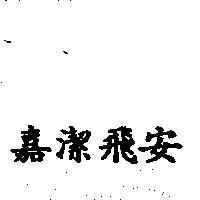 嘉潔飛安